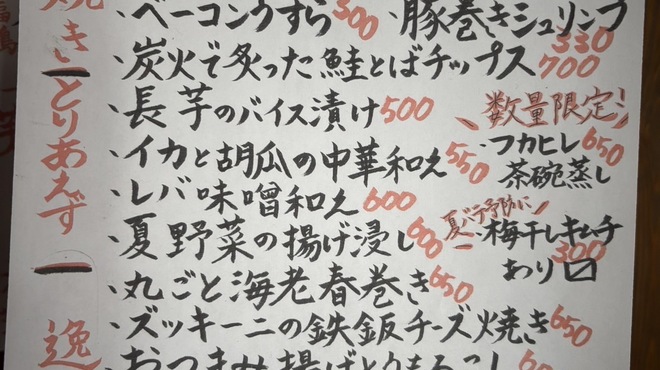 焼き
・ベーコンうずら 300
・豚巻きシュリンプ 330
・炭火で炙った鮭とばチップス 700
ーとりあえずー
・長芋のバイス漬け 500
・イカと胡瓜の中華和え 550
・レバ味噌和え 600
・夏野菜の揚げ浸し 600
・丸ごと海老春巻き 650
・ズッキーニの鉄鈑チーズ焼き 650
・おつまみ揚げとうもろこし
数量限定!
・フカヒレ 650
茶碗蒸し
夏バテ予防に
・梅干しキムチ 300
あり〼
逸